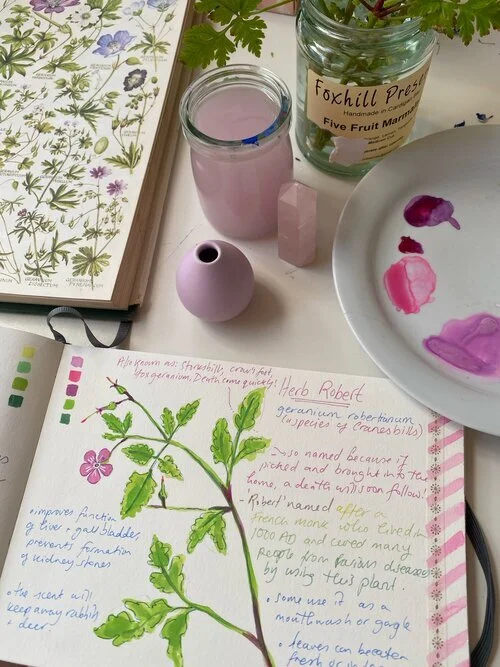 Foxhill Prese
Handmade in Cardigan
Five Fruit Marma
GERANIUM
DISSECTUM
GERANIUM
Also known as: Storksbills, crow's foot,
fox geranium, Death come quickly!
Herb Robert
geranium robertianum
(a species of Cranesbills)
- so named because if
picked and brought into the
home, a death will soon follow!
- 'Robert' named after a
french monk who lived in
1000 AD and cured many
people from various diseases
by using this plant.
• some use it as a
mouthwash or gargle
• leaves can be eaten
fresh or
• improves function
of liver + gall bladder,
prevents formation
of kidney stones
• the scent will
keep away rabbits
+ deer